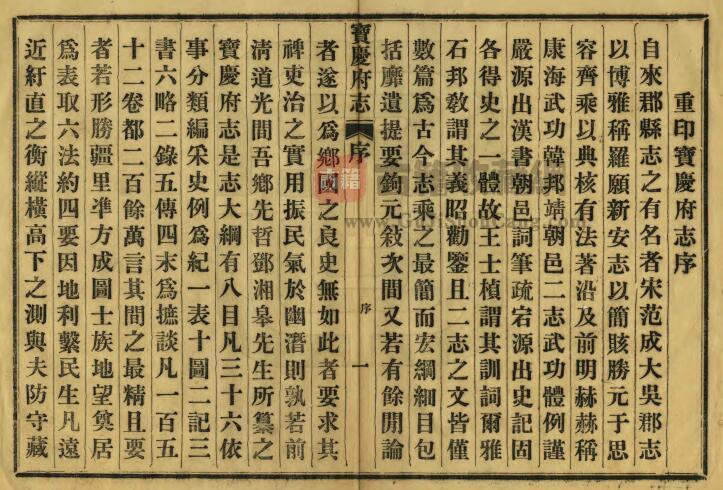 重印寶慶府志序
自來郡縣志之有名者宋范成大吳郡志
以博雅稱羅願新安志以簡賅勝元于思
容齊乘以典核有法著沿及前明赫赫稱
康海武功韓邦靖朝邑二志武功體例謹
嚴源出漢書朝邑詞筆疏宕源出史記固
各得史之一體故王士楨謂其訓詞爾雅
石邦敎謂其義昭勸鑒且二志之文皆僅
數篇爲古今志乘之最簡而宏綱細目包
括靡遺提要鉤元敍次間又若有餘閒論
寶慶府志 序
序
一
者遂以爲鄉國之良史無如此者要求其
裨吏治之實用振民氣於幽潛則孰若前
清道光間吾鄉先哲鄧湘皋先生所纂之
寶慶府志是志大綱有八目凡三十六依
事分類編采史例爲紀一表十圖二記三
書六略二錄五傳四末爲摭談凡一百五
十二卷都二百餘萬言其間之最精且要
者若形勝疆里凖方成圖士族地望奠居
爲表取六法約四要因地利繫民生凡遠
近紆直之衡縱橫高下之測與夫防守藏